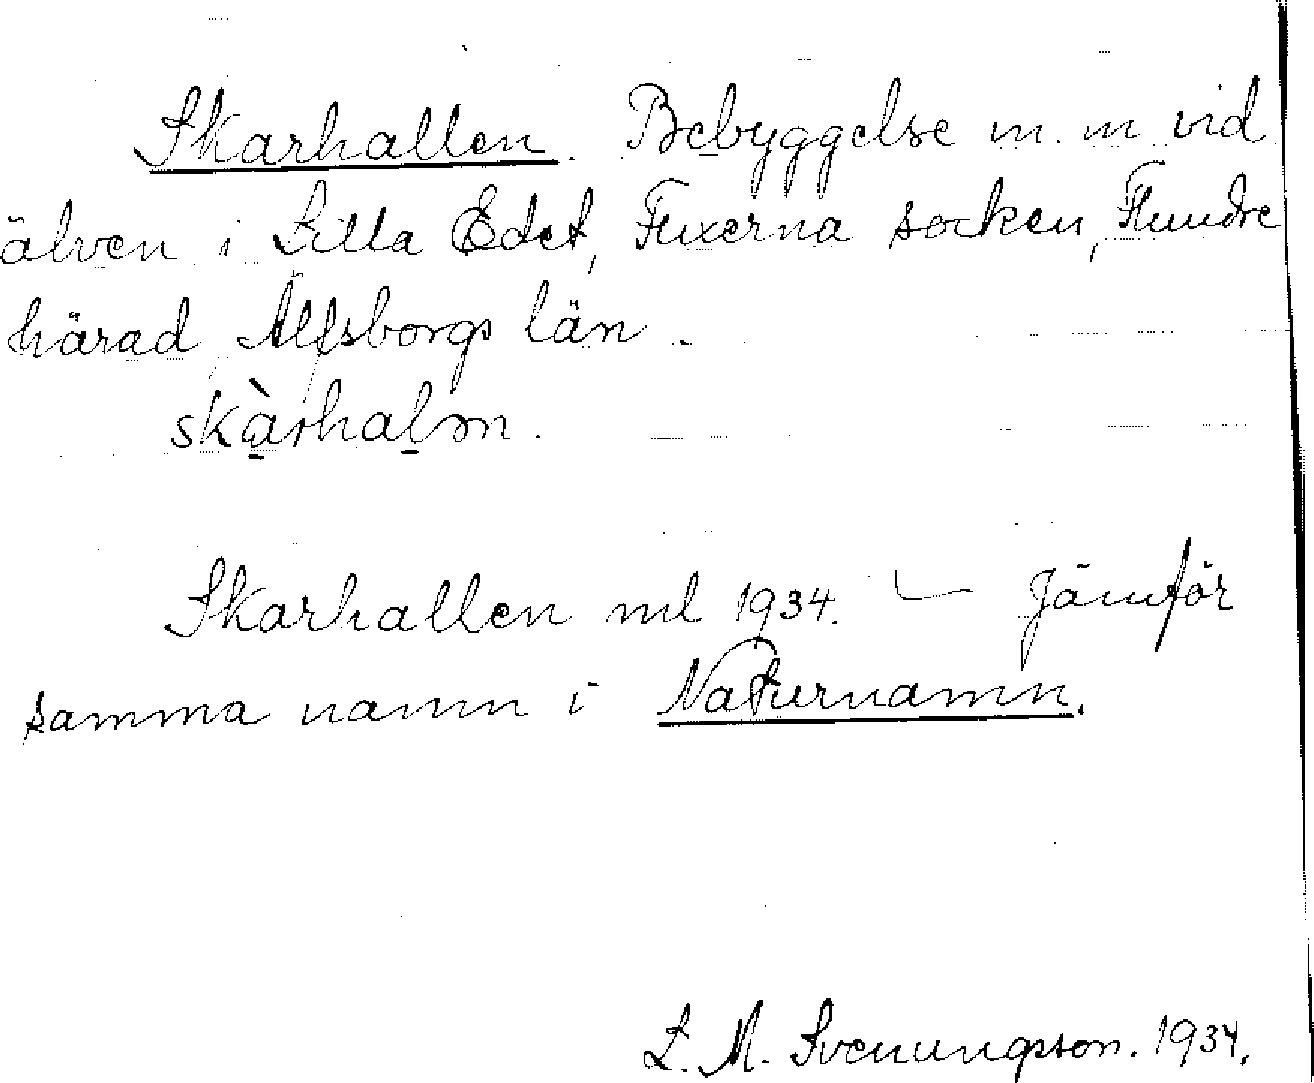 Skarhallen. Bebyggelse m. m vid
älven i Lilla Edet, Fuxerna socken, Flundre
härad, Älfsborgs län.
skàrhalan.
Skarhallen ml 1934. — Jämför
samma namn i Naturnamn.
L. M. Svenungsson. 1934.